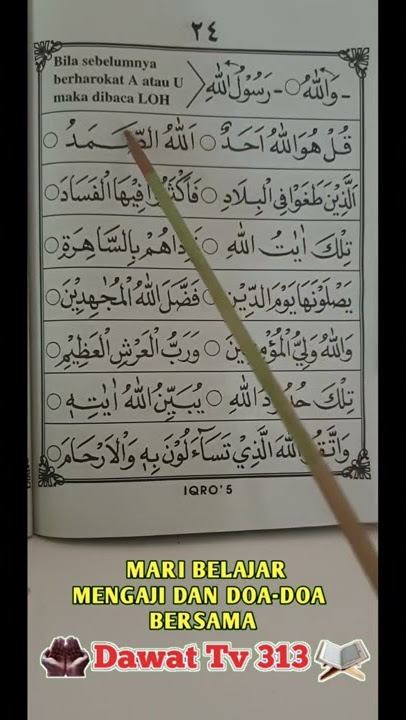 ٢٤
Bila sebelumnya
berharokat A atau U
maka dibaca LOH
- وَاللهُ ○ - رَسُوْلُ اللهِ
قُلْ هُوَ اللهُ اَحَدٌ ○ اَللهُ الصَّمَدُ ○
الَّذِيْنَ طَغَوْا فِى الْبِلَادِ ○ فَاَكْثَرُوْا فِيْهَا الْفَسَادَ ○
تِلْكَ اٰيٰتُ اللهِ ○ هُمْ بِالسَّاهِرَةِ ○
يَصْلَوْنَهَا يَوْمَ الدِّيْنِ ○ فَضَّلَ اللهُ الْمُجٰهِدِيْنَ ○
وَاللهُ وَلِيُّ الْمُؤْمِنِيْنَ ○ وَرَبُّ الْعَرْشِ الْعَظِيْمِ ○
تِلْكَ حُدُوْدُ اللهِ ○ يُبَيِّنُ اللهُ اٰيٰتِهٖ ○
وَاتَّقُوا اللهَ الَّذِيْ تَسَآءَلُوْنَ بِهٖ وَالْاَرْحَامَ ○
IQRO' 5
MARI BELAJAR
MENGAJI DAN DOA-DOA
BERSAMA
Dawat Tv 313